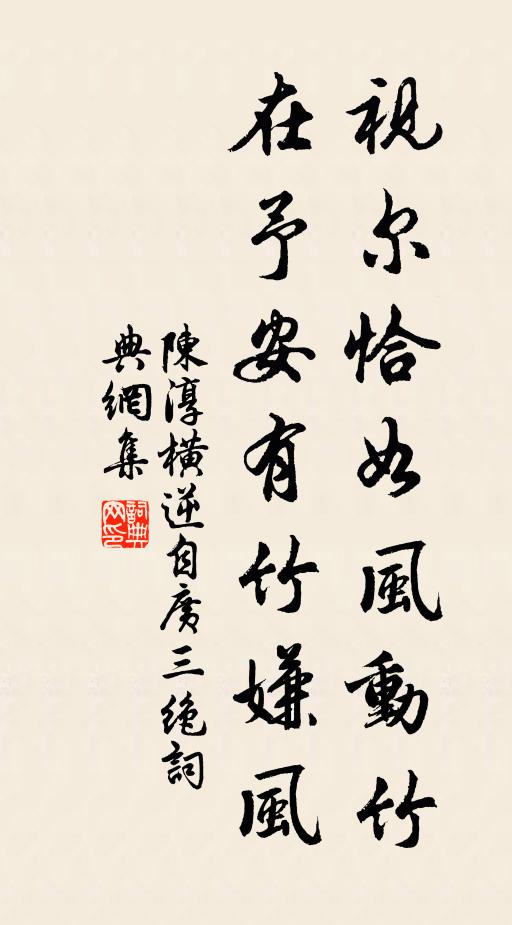 視尔恰如風動竹
在予安有竹嫌風
陳淳橫逆自廣三絶詞
典網集
詞典网印